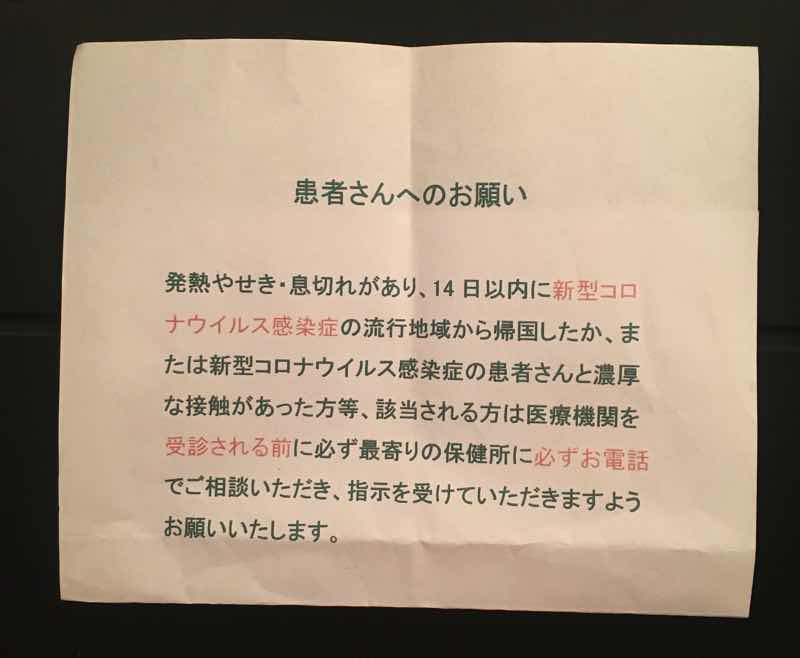 患者さんへのお願い
発熱やせき・息切れがあり、14 日以内に新型コロ
ナウイルス感染症の流行地域から帰国したか、ま
たは新型コロナウイルス感染症の患者さんと濃厚
な接触があった方等、該当される方は医療機関を
受診される前に必ず最寄りの保健所に必ずお電話
でご相談いただき、指示を受けていただきますよう
お願いいたします。